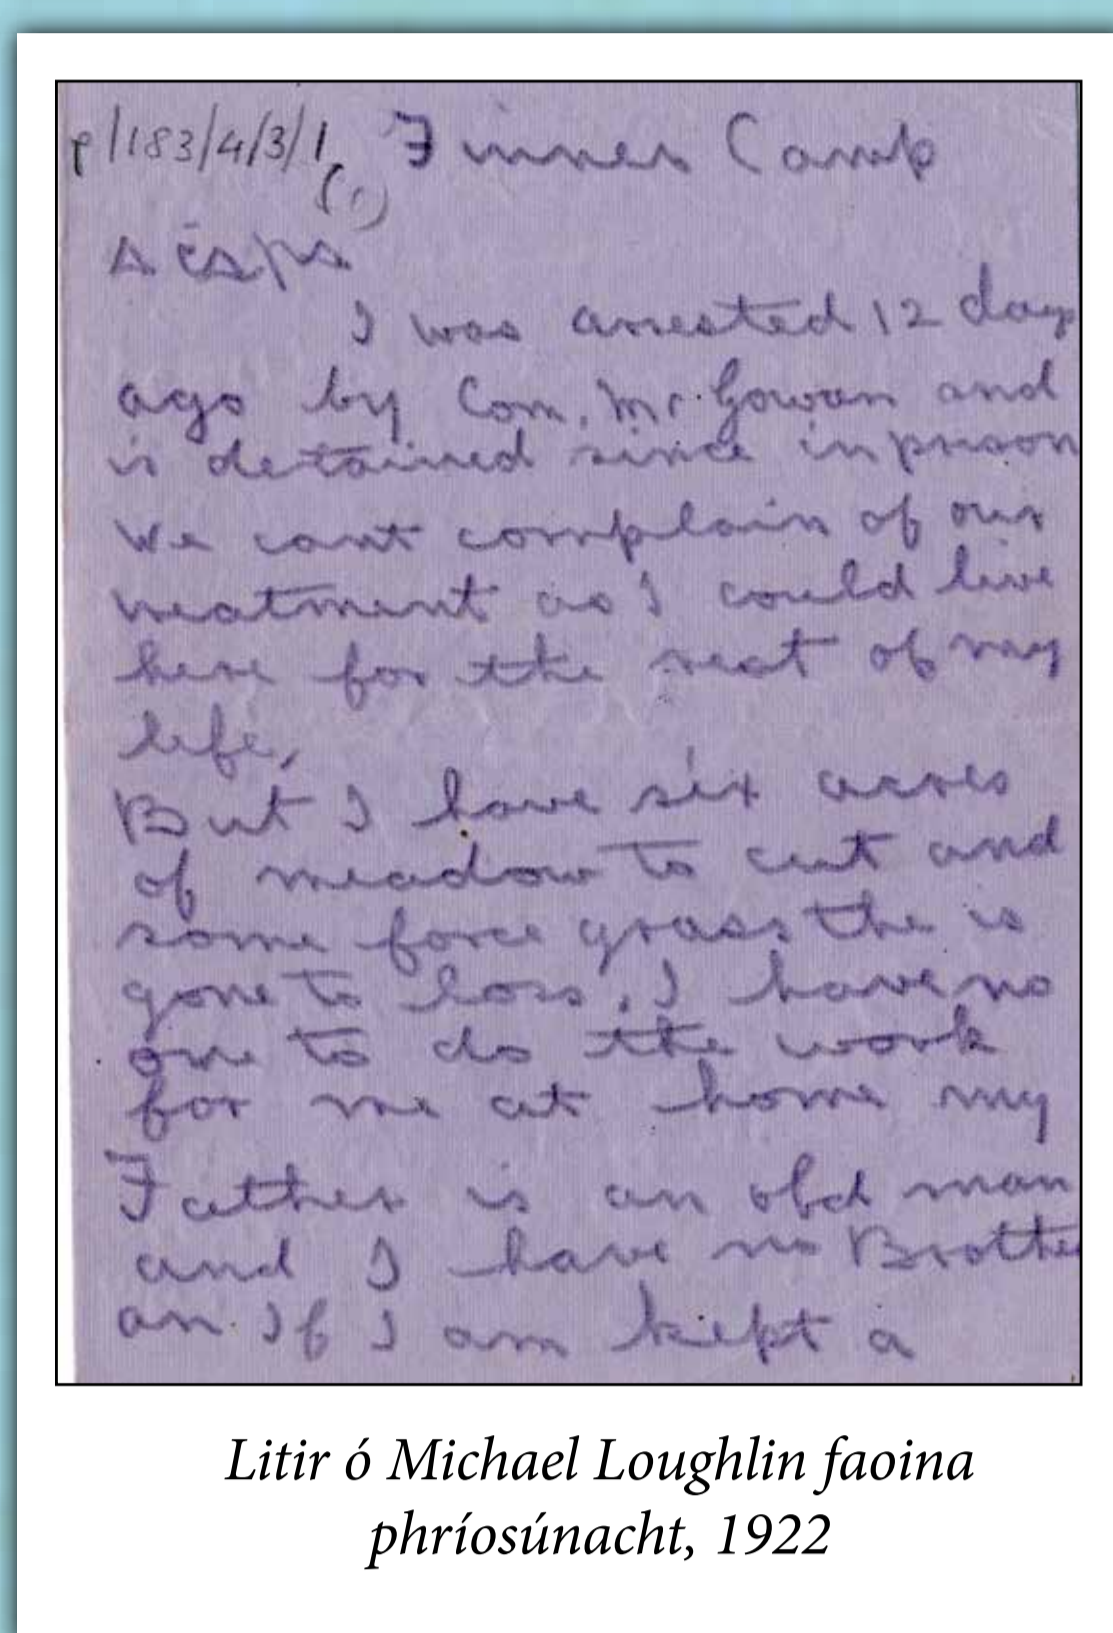 P/183/4/3/1 Finner Camp
(1)
A Ċara
I was arrested 12 days
ago by Com. Mc.Gowan and
is detained since in prison
We cant complain of our
treatment as I could live
here for the rest of my
life,
But I have six acres
of meadow to cut and
some force grass the is
gone to loss, I have no
one to do the work
for me at home my
Father is an old man
and I have no Brother
an If I am kept a
Litir ó Michael Loughlin faoina
phríosúnacht, 1922